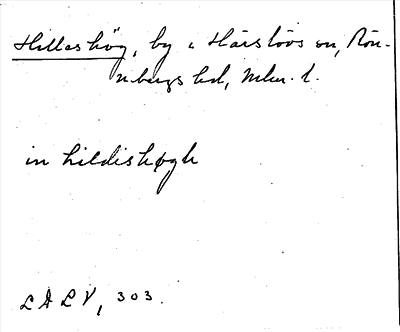 Hilleshög, by i Härslövs sn, Rön-
nebergs hd, Mlm. l.
in hildishøgh
LALV, 303.